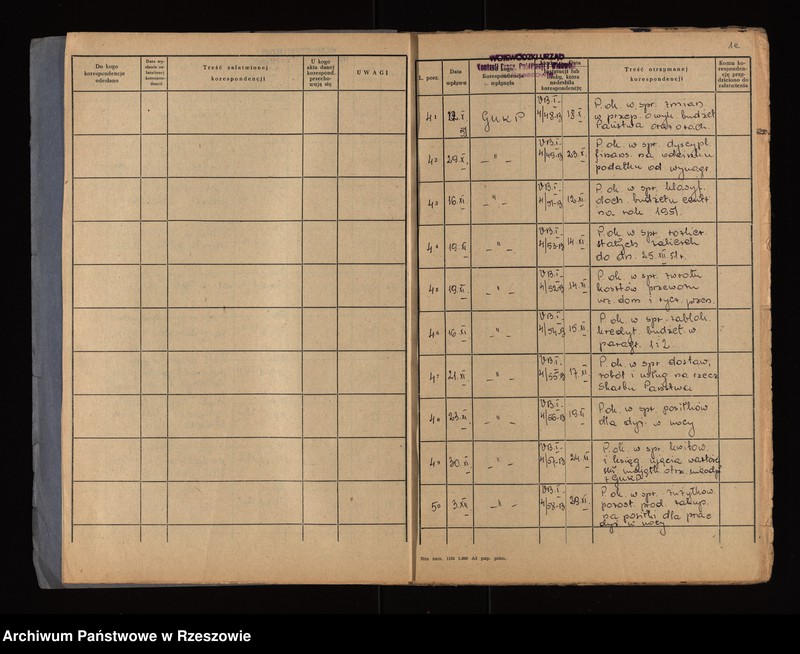 1e
Do kogo korespondencję odesłano
Data wysłania załatwionej korespondencji
Treść załatwionej korespondencji
U kogo akta danej korespond. przechowują się
UWAGI
WOJEWÓDZKI URZĄD
Kontroli Prasy, Publikacji i Widowisk
L. porz.
Data wpływu
korespondencja wpłynęła
Data
nadesłała korespondencję
Treść otrzymanej korespondencji
Komu korespondencję przydzielono do załatwienia
41
GUKP
VBI-4/48-B
18 X
P. ok. w spr. zmian
w przep. o wyk. budżet
Państwa oraz
42
29.X.
— " —
VBI-4/49-B
23.X.
P. ok. w spr. dyscypl.
finans. na odcinku
podatku od wynagr.
43
16.XI
— " —
VBI-4/51-B
12.XI
P. ok. w spr. klasyf.
doch. budżetu centr
na rok 1951.
44
19.XI
— " —
VBI-4/53-B
14.XI
P. ok. w spr. rozlicz.
stałych zaliczek
do dn. 25.XII.51r.
45
19.XI
— " —
VBI-4/52-B
14.XI
P. ok. w spr. zwrotu
kosztów przewozu
urz. dom i
46
16.XI
— " —
VBI-4/54-B
15.XI
P. ok. w spr. zablok.
kredyt. budżet w
paragr. 1 i 2.
47
21.XI
— " —
VBI-4/55-B
17.XI
P. ok. w spr. dostaw,
robót i usług na rzecz
Skarbu Państwa
48
23.XI
— " —
VBI-4/56-B
19.XI
P. ok. w spr. posiłków
dla dyż. w nocy
49
30.XI
— " —
VBI-4/57-B
24.XI
P. ok. w spr. kwitów
i ksiąg ujęcia
z GUKP
50
3.XII
— " —
VBI-4/58-B
29.XI.
P. ok. w spr. zużytkow.
pozost. prod. zakup.
na posiłki dla prac
dyż. w nocy
Archiwum Państwowe w Rzeszowie